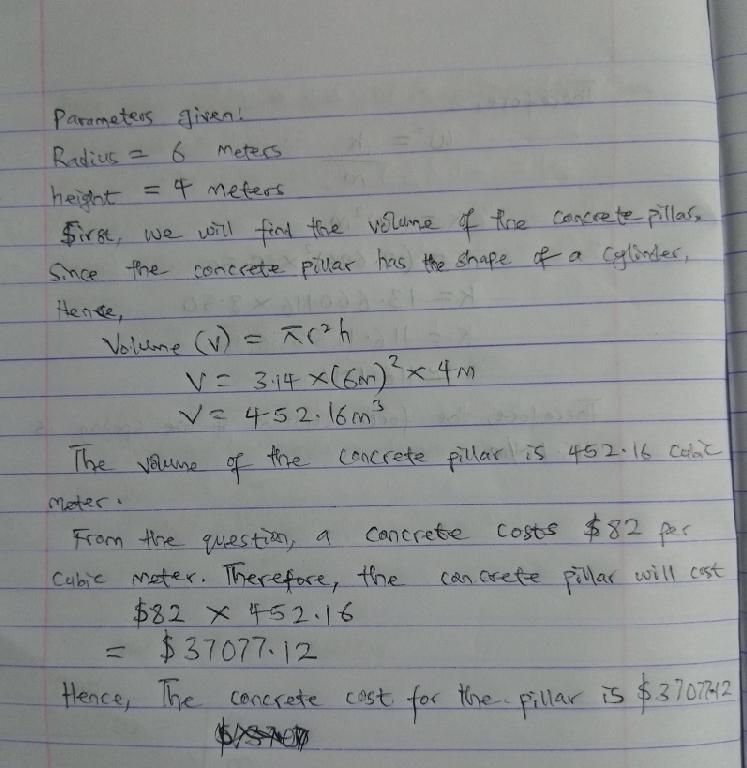 Parameters given:
Radius = 6 meters
height = 4 meters
First, we will find the volume of the concrete pillar,
Since the concrete pillar has the shape of a cylinder,
Hence,
Volume (V) = πr²h
V = 3.14 × (6m)² × 4m
V = 452.16m³
The volume of the concrete pillar is 452.16 cubic
meter.
From the question, a concrete costs $82 per
cubic meter. Therefore, the concrete pillar will cost
$82 × 452.16
= $37077.12
Hence, The concrete cost for the pillar is $37077.12